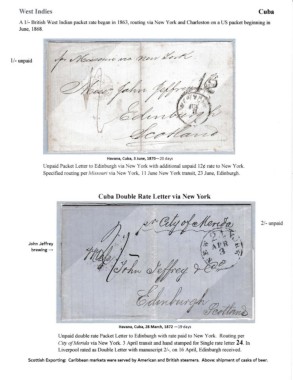 West Indies Cuba
A 1/- British West Indian packet rate began in 1863, routing via New York and Charleston on a US packet beginning in
June, 1868.
1/- unpaid
p Missouri via New York
Messrs John Jeffrey
Edinburgh
Scotland
Havana, Cuba, 3 June, 1873—20 days
Unpaid Packet Letter to Edinburgh via New York with additional unpaid 12¢ rate to New York.
Specified routing per Missouri via New York, 11 June New York transit, 23 June, Edinburgh.
Cuba Double Rate Letter via New York
2/- unpaid
John Jeffrey
brewing
per City of Merida
John Jeffrey & Co
Edinburgh
Scotland
Havana, Cuba, 28 March, 1872—19 days
Unpaid double rate Packet Letter to Edinburgh with rate paid to New York. Routing per
City of Merida via New York. 3 April transit and hand stamped for Single rate letter 24. In
Liverpool rated as Double Letter with manuscript 2/-, on 16 April, Edinburgh received.
Scottish Exporting: Caribbean markets were served by American and British steamers. Above shipment of casks of beer.